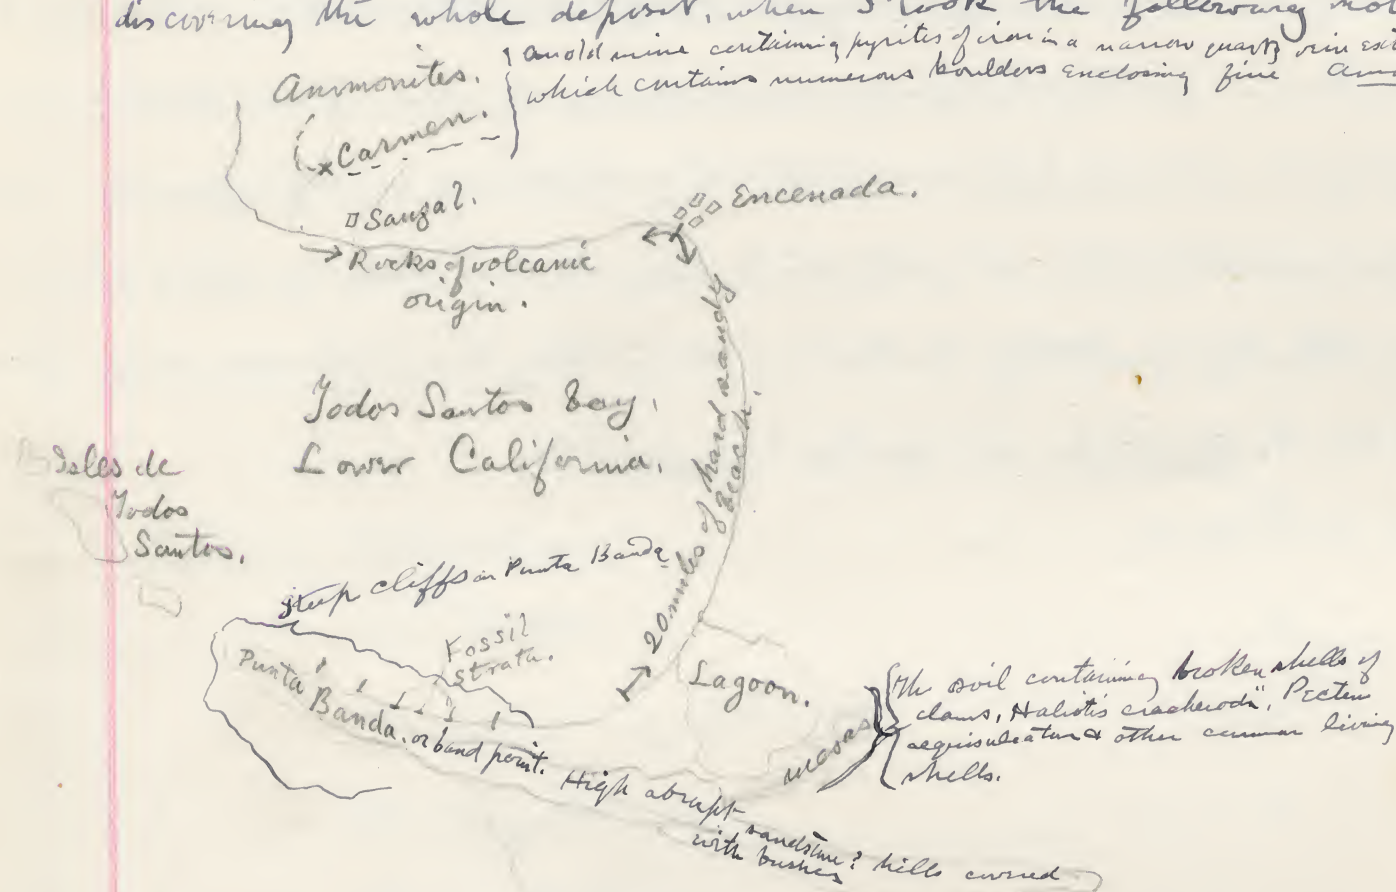 discovering the whole deposit, when I took the following
an old mine containing pyrites of iron in a narrow quartz vein
which contains numerous boulders enclosing fine
Ammonites.
Carmen.
Sauzal.
Encenada.
Rocks of volcanic
origin.
20 miles of hard sandy
beach.
Todos Santos Bay,
Lower California.
Isles de
Todos
Santos.
steep cliffs on Punta Banda
Fossil
strata.
Punta
Banda. or band point.
Lagoon.
mesas
The soil containing broken shells of
clams, Haliotis cracherodii, Pecten
aequisulcatus & other common living
shells.
High abrupt
sandstone? hills covered
with bushes